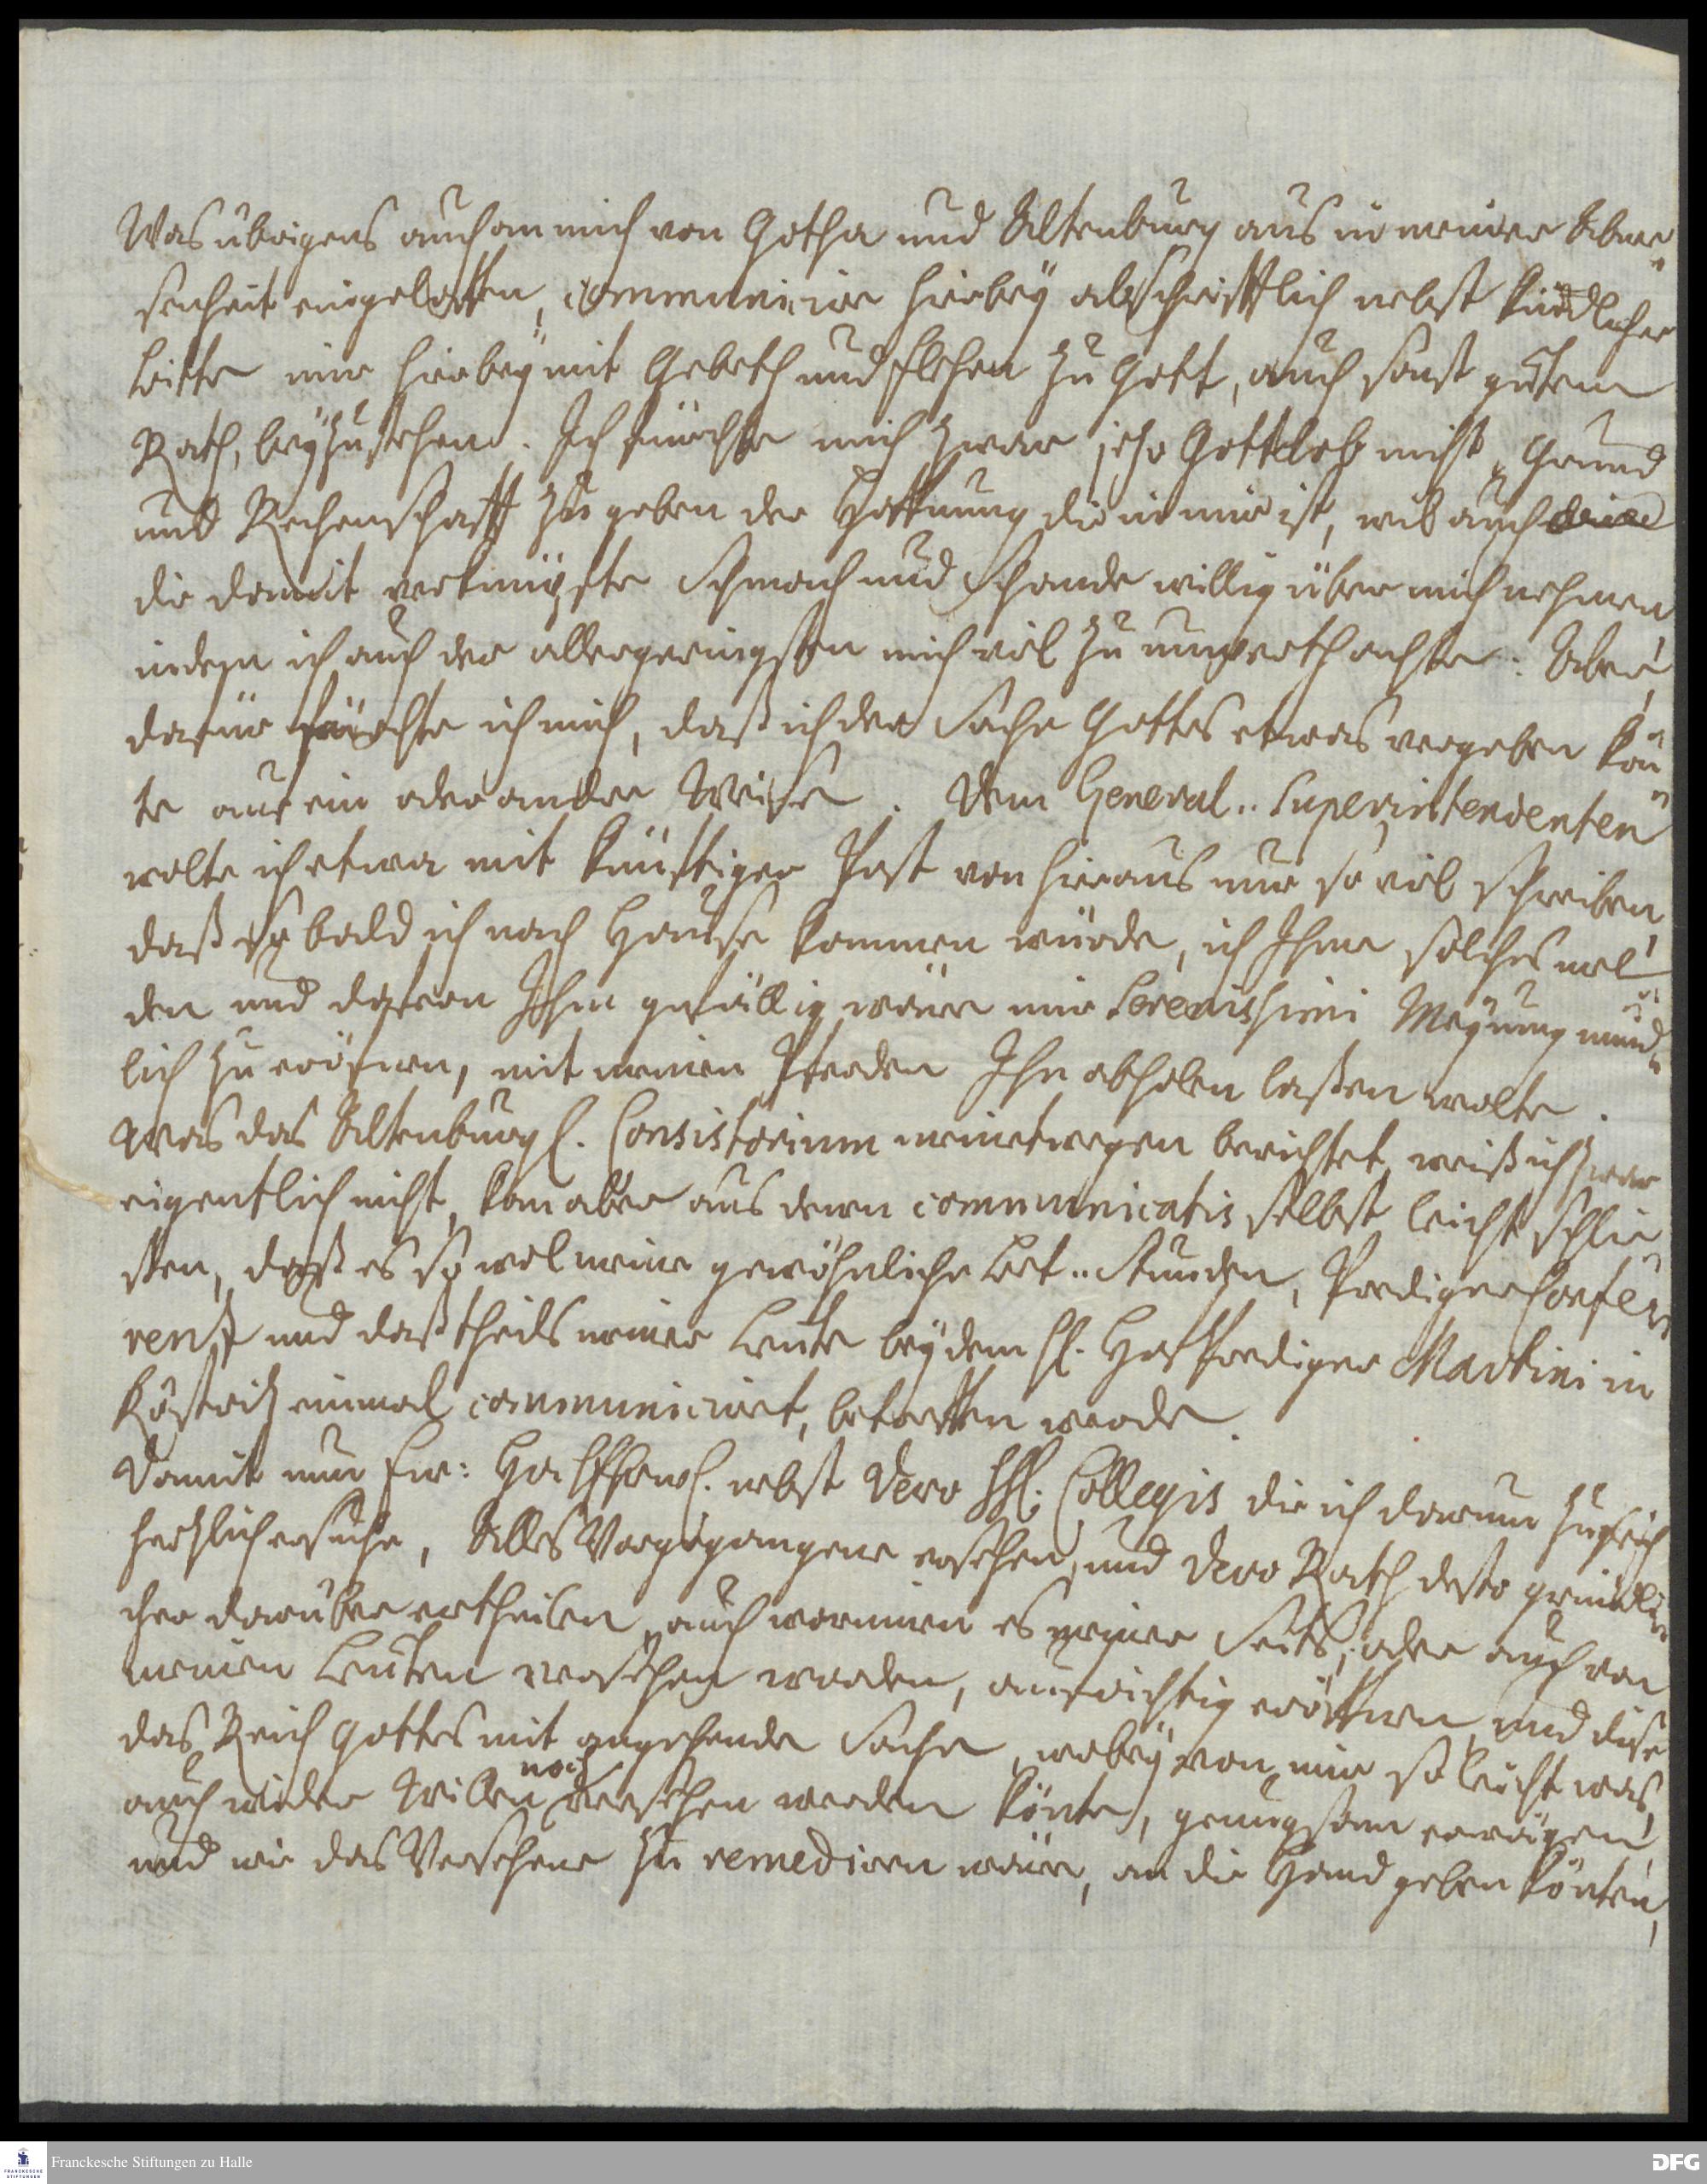 Was übrigens auch an mich von Gotha und Altenburg aus in meiner Abwe-
senheit eingeloffen, communicire hierbey abschrifftlich nebst kindlicher
bitte mir hierbey mit Gebeth und flehen zu Gott, auch sonst gutem
Rath, beyzustehen. Ich fürchte mich zwar jetzo Gottlob nicht, Grund
und Rechenschafft zu geben der Hoffnung die in mir ist, wil auch
die damit verknüpfte Schmach und Schande willig über mich nehmen
indem ich auch der allergeringsten mich viel zu unwerth achte. Aber,
dafür fürchte ich mich, daß ich der Sache Gottes etwas vergeben kön-
te auf ein oder andre Weise. Dem General-Superintendenten
wolte ich etwa mit künftiger Post von hieraus nur so viel schreiben,
daß so bald ich nach Hause kommen würde, ich Ihme solches mel-
den und dafern Ihm gefällig wäre mir Serenissimi Meynung münd-
lich zu eröfnen, mit meinen Pferden Ihn abholen laßen wolte.
Was das Altenburgl. Consistorium meinetwegen berichtet, weiß ich zwar
eigentlich nicht, kan aber aus denen communicatis selbst leicht schlie-
ßen, daß es so wol meine gewöhnliche Bet-Stunden, Prediger Confe-
renz und daß theils meiner Leute bey dem H. Hofprediger Martini in
Köstritz einmal communiciret, betreffen werde.
Damit nun Ew: HochEhrw. nebst Dero HH. Collegis die ich darum zugleich
hertzlich ersuche, Alles Vorgegangene ersehen, und Dero Rath desto gründli-
cher darüber ertheilen, auch worinnen es meiner Seits, oder auch von
meinen Leuten versehen worden, aufrichtig eröffnen, und diese
das Reich Gottes mit angehende Sache, wobey von mir so leicht was,
noch
auch wider Willen versehen werden könte, genugsam erwägen,
und wie das Versehene zu remediren wäre, an die Hand geben könten,
Franckesche Stiftungen zu Halle
FRANCKESCHE STIFTUNGEN
DFG